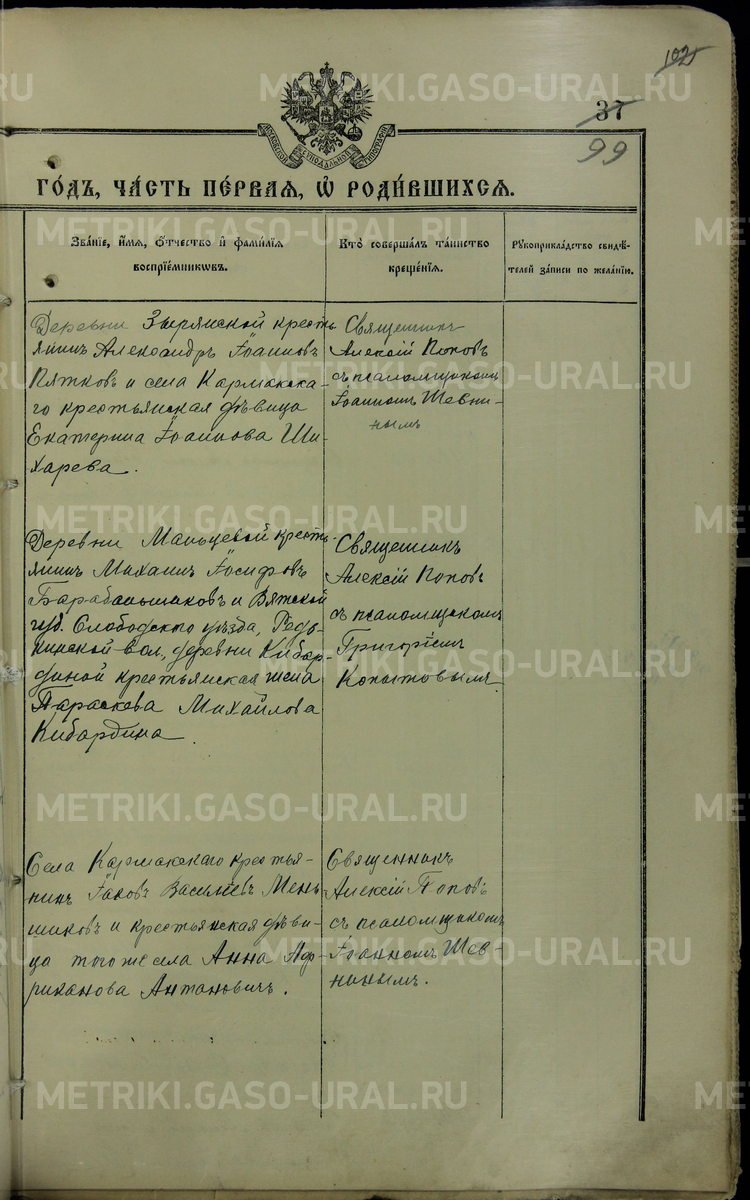 102
37
99
МОСКОВСКОЙ СѴНОДАЛЬНОЙ ТИПОГРАФІИ
ГО́ДЪ, ЧА́СТЬ ПЕ́РВАЯ, Ѽ РОДИ́ВШИХСѦ.
Зва́нїе, и҆́мѧ, ѻ҆́тчество и҆ фами́лїѧ
воспрїе́мникѡвъ.
Кто̀ соверша́лъ та́инство
креще́нїѧ.
Рꙋкоприкла́дство свидѣ́-
телей за́писи по жела́нїю.
Деревни Зырянской кресть-
янинъ Александръ Іоанновъ
Пятковъ и села Кармакска-
го крестьянская дѣвица
Екатерина Іоаннова Ши-
харева.
Священникъ
Алексій Поповъ
съ псаломщикомъ
Іоанномъ Шевни-
нымъ
Деревни Мальцевой кресть-
янинъ Михаилъ Іосифовъ
Барабанщиковъ и Вятской
губ. Слободского уѣзда,
кинской вол., деревни Кибар-
диной крестьянская жена
Параскева Михайлова
Кибардина
Священникъ
Алексій Поповъ
съ псаломщикомъ
Григоріемъ
Копытовымъ
Села Кармакскаго крестья-
нинъ Іаковъ Васильевъ Мень
шиковъ и крестьянская дѣви-
ца того же села Анна Аф-
риканова Антановичъ.
Священникъ
Алексій Поповъ
съ псаломщикомъ
Іоанномъ Шев-
нинымъ.
METRIKI.GASO-URAL.RU